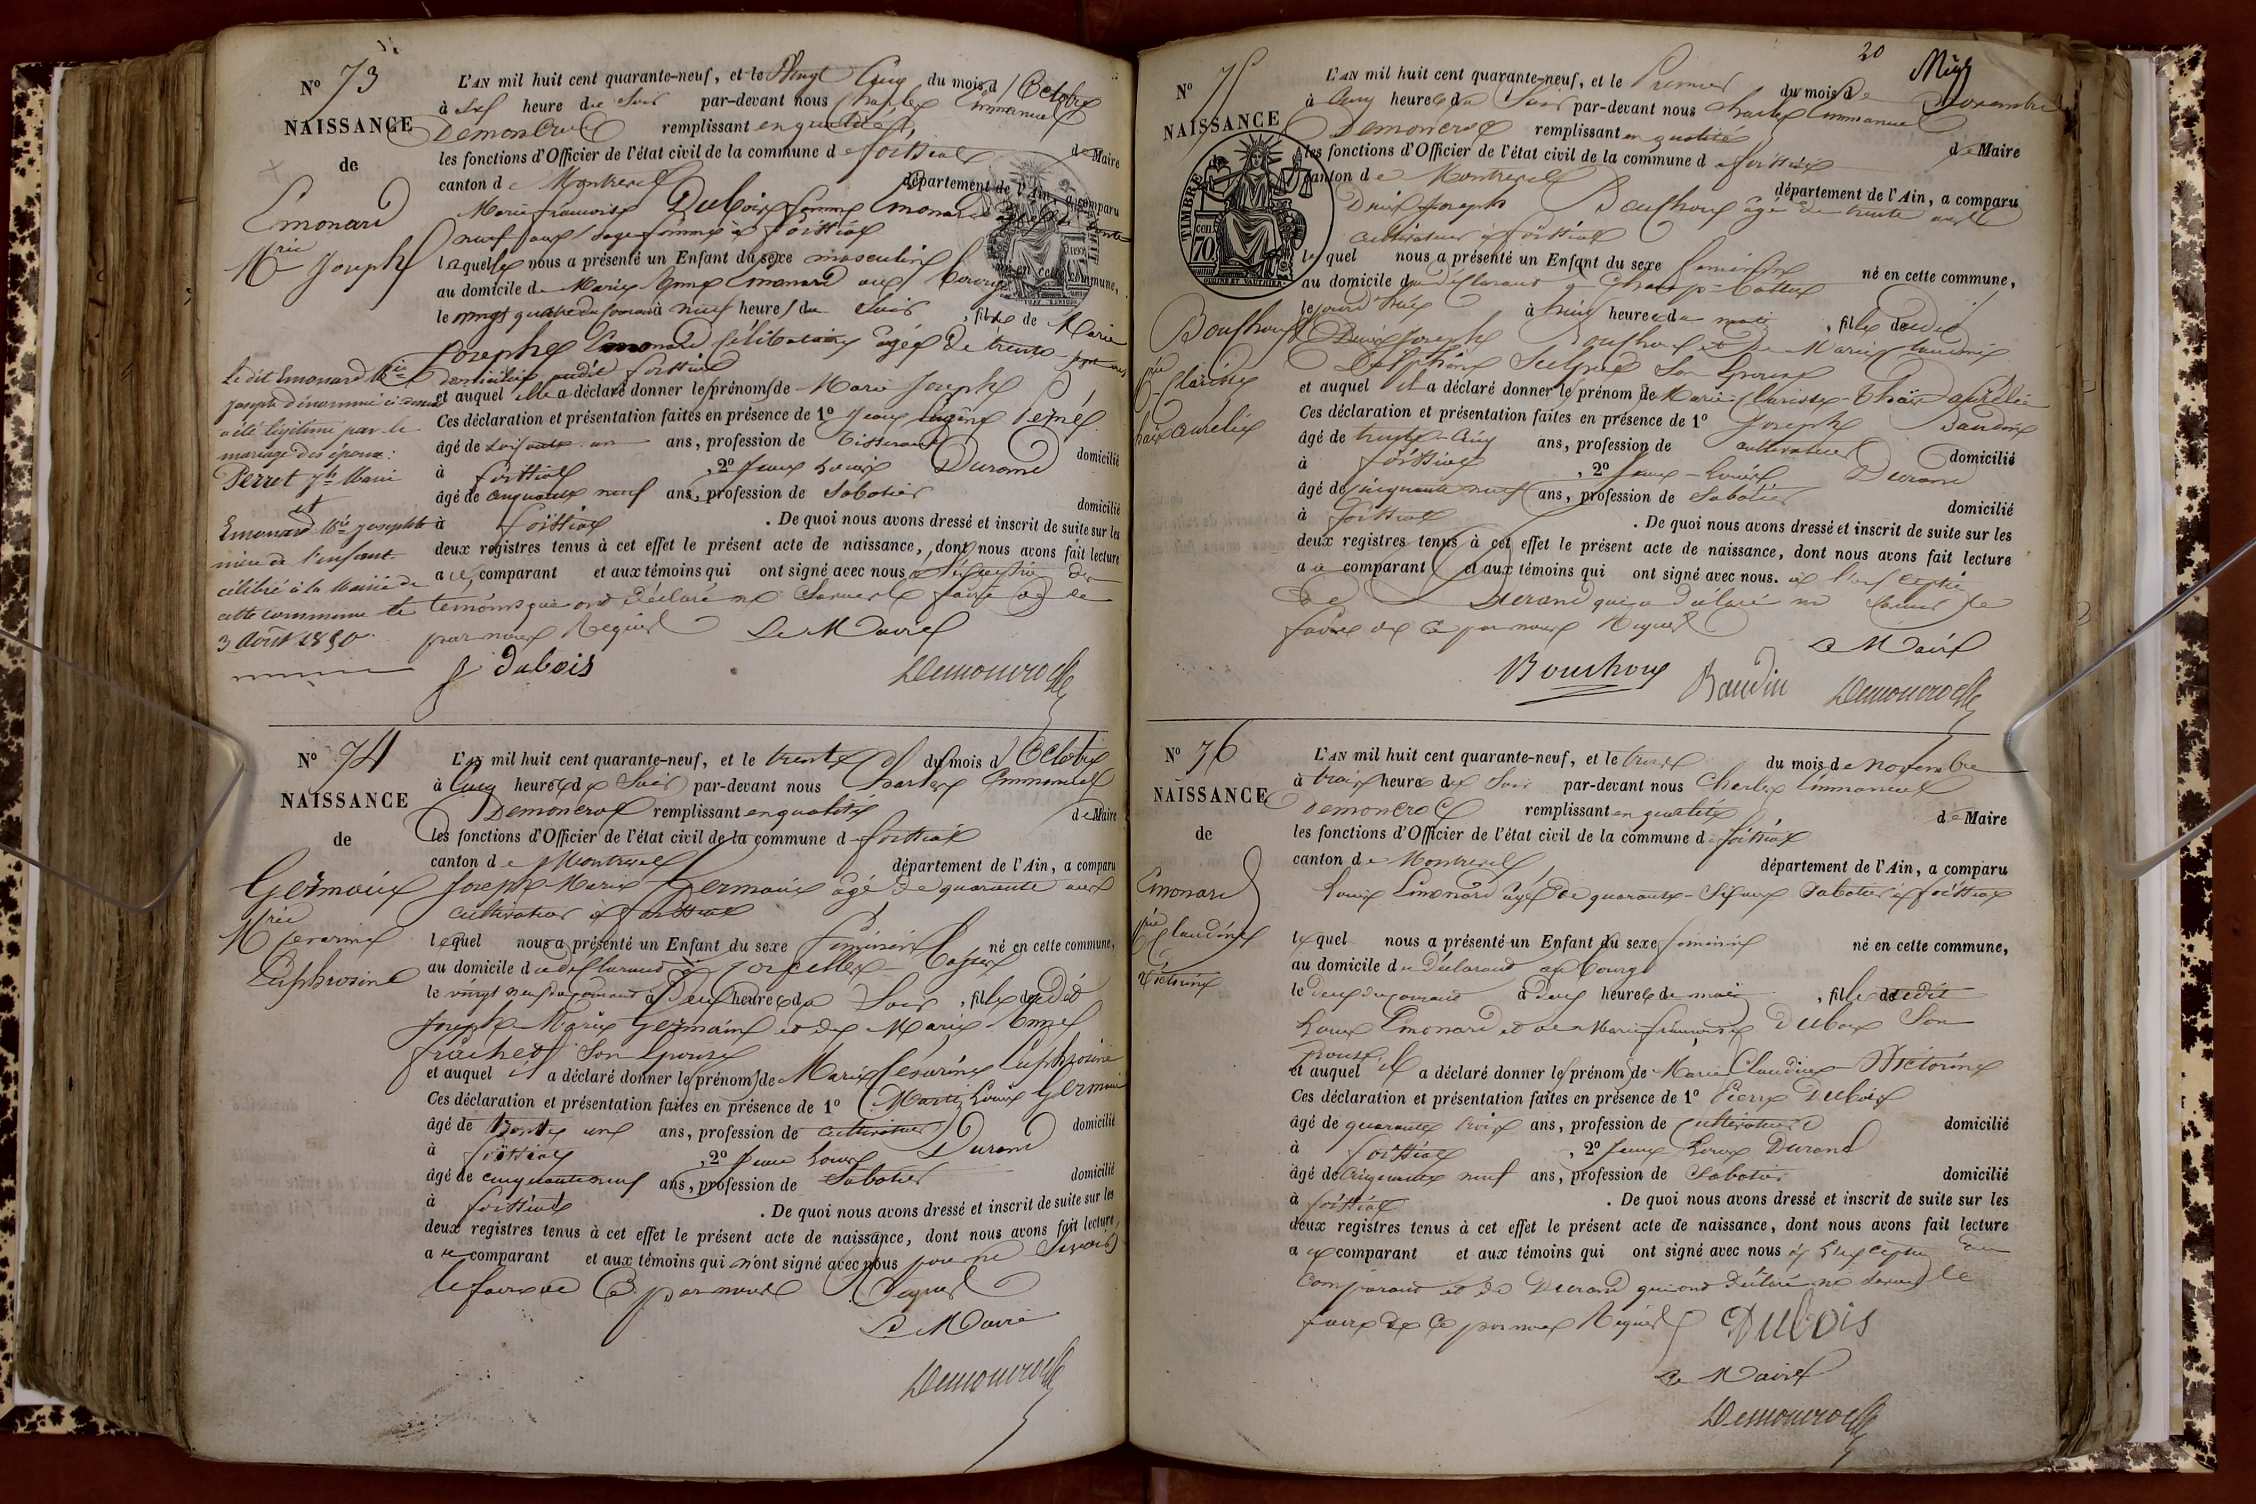 N° 73
NAISSANCE
de
Emonard
Mie Joseph
L'AN mil huit cent quarante-neuf, et le Vingt Cinq du mois d'Octobre
à Six heure du Soir par-devant nous Charles Emmanuel
Demoncroz remplissant en qualité
les fonctions d'Officier de l'état civil de la commune de foissiat de Maire
canton de Montrevel département de l'Ain, a comparu
Marie françoise Dubois femme Emonard âgée de trente
neuf ans, Sage femme à foissiat
laquelle nous a présenté un Enfant du sexe masculin né en cette commune,
au domicile de Marie Emonard au bourg
le vingt quatre du Courant à neuf heure du Soir, fils de Marie
Joseph Emonard Célibataire âgée de trente ans
domiciliée audit foissiat
et auquel elle a déclaré donner le prénom de Marie Joseph
Ces déclaration et présentation faites en présence de 1° Jean
âgé de soixante un ans, profession de Tisserand domicilié
à foissiat, 2° Jean Louis Durand
âgé de cinquante neuf ans, profession de Sabotier domicilié
à foissiat. De quoi nous avons dressé et inscrit de suite sur les
deux registres tenus à cet effet le présent acte de naissance, dont nous avons fait lecture
a ce comparant et aux témoins qui ont signé avec nous à l'exception des
témoins qui ont déclaré ne Savoir le faire de ce
par nous Requis Le Maire
f Dubois Demoncroz
Le dit Emonard Mie
Joseph dénommé ci dessus
a été légitimé par le
mariage des époux:
Perret Jh Marie
et
Emonard Mie Joseph
mère de l'enfant
célébré à la Mairie de
cette commune le
3 Août 1850
N° 74
NAISSANCE
de
Germain
Mrie Cesarine
Euphrosine
L'AN mil huit cent quarante-neuf, et le trente du mois d'Octobre
à Cinq heure du Soir par-devant nous Charles Emmanuel
Demoncroz remplissant en qualité de Maire
les fonctions d'Officier de l'état civil de la commune de foissiat
canton de Montrevel département de l'Ain, a comparu
Joseph Marie Germain âgé de quarante ans
cultivateur à foissiat
lequel nous a présenté un Enfant du sexe féminin né en cette commune,
au domicile du déclarant à
le vingt neuf du courant à Deux heure du Soir, fille dudit
Joseph Marie Germain et de Marie Anne
son épouse
et auquel il a déclaré donner le prénom de Marie Césarine Euphrosine
Ces déclaration et présentation faites en présence de 1° Louis Germain
âgé de trente un ans, profession de cultivateur domicilié
à foissiat, 2° Jean Louis Durand
âgé de cinquante neuf ans, profession de Sabotier domicilié
à foissiat. De quoi nous avons dressé et inscrit de suite sur les
deux registres tenus à cet effet le présent acte de naissance, dont nous avons fait lecture
a ce comparant et aux témoins qui n'ont signé avec nous pour ne Savoir
le faire de Ce par nous Requis
Le Maire
Demoncroz
20
N° 75
NAISSANCE
TIMBRE
70
Bouchoux
Mie Clarisse
Thaïs Aurélie
L'AN mil huit cent quarante-neuf, et le Premier du mois de Novembre
à Cinq heure du Soir par-devant nous Charles Emmanuel
Demoncroz remplissant en qualité de Maire
les fonctions d'Officier de l'état civil de la commune de foissiat
canton de Montrevel département de l'Ain, a comparu
Denis Joseph Bouchoux âgé de trente ans
cultivateur à foissiat
lequel nous a présenté un Enfant du sexe féminin né en cette commune,
au domicile du déclarant à
le jourd'huis à huit heure du matin, fille dudit
Denis Joseph Bouchoux et de Marie Claudine
Delphine son épouse
et auquel il a déclaré donner le prénom de Marie-Clarisse-Thaïs-Aurélie
Ces déclaration et présentation faites en présence de 1° Joseph Baudin
âgé de trente-cinq ans, profession de cultivateur domicilié
à foissiat, 2° Jean-Louis Durand
âgé de cinquante neuf ans, profession de Sabotier domicilié
à foissiat. De quoi nous avons dressé et inscrit de suite sur les
deux registres tenus à cet effet le présent acte de naissance, dont nous avons fait lecture
a ce comparant et aux témoins qui ont signé avec nous. à l'exception
de Durand qui a déclaré ne Savoir le
faire de ce par nous Requis
Le Maire
Bouchoux Baudin Demoncroz
N° 76
NAISSANCE
de
Emonard
Mie Claudine
Victorine
L'AN mil huit cent quarante-neuf, et le trois du mois de novembre
à trois heure du Soir par-devant nous Charles Emmanuel
Demoncroz remplissant en qualité de Maire
les fonctions d'Officier de l'état civil de la commune de foissiat
canton de Montrevel département de l'Ain, a comparu
Louis Emonard âgé de quarante-Six ans Sabotier à foissiat
lequel nous a présenté un Enfant du sexe féminin né en cette commune,
au domicile du Déclarant au bourg
le deux du courant à deux heure de matin, fille dudit
Louis Emonard et de Marie françoise Dubois Son
épouse
et auquel il a déclaré donner le prénom de Marie Claudine Victorine
Ces déclaration et présentation faites en présence de 1° Pierre Dubois
âgé de quarante trois ans, profession de Cultivateur domicilié
à foissiat, 2° Jean Louis Durand
âgé de cinquante neuf ans, profession de Sabotier domicilié
à foissiat. De quoi nous avons dressé et inscrit de suite sur les
deux registres tenus à cet effet le présent acte de naissance, dont nous avons fait lecture
a ce comparant et aux témoins qui ont signé avec nous à l'exception du
Comparant et de Durand qui ont déclaré ne Savoir le
faire de Ce par nous Requis Dubois
Le Maire
Demoncroz